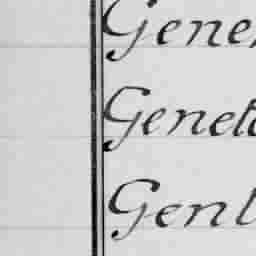 Gene
Genet
Gent